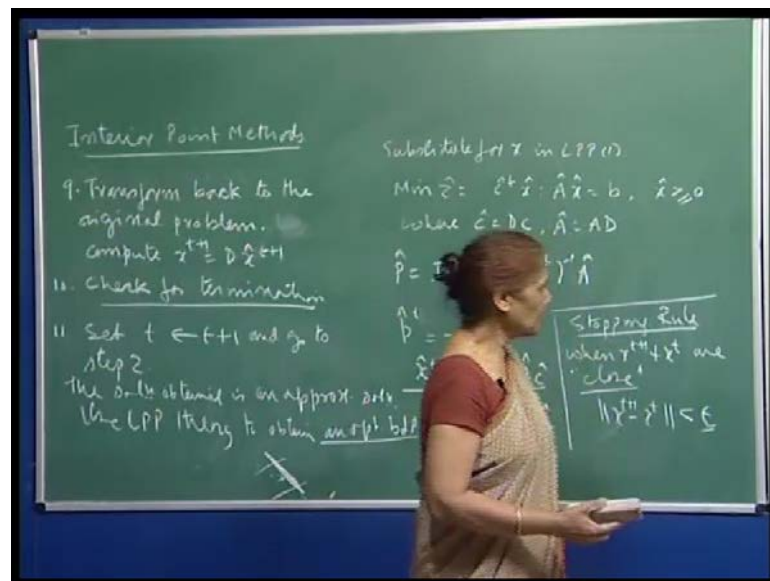 Interior Point Methods
9. Transform back to the
original problem.
compute x^{t+1} = D x̂^{t+1}
10. Check for termination
11 Set t ← t+1 and go to
step 2.
The soln obtained is an approx. soln.
Use LPP theory to obtain an opt bfs
Substitute for x in LPP (1)
Min ẑ = ĉ^t x̂ : Â x̂ = b, x̂ ≥ 0
where ĉ = DC, Â = AD
P̂ = I )^{-1} Â
p̂^t = -
x̂ ĉ
Stopping Rule
when x^{t+1} & x^t are
"close"
||x^{t+1} - x^t|| < ε